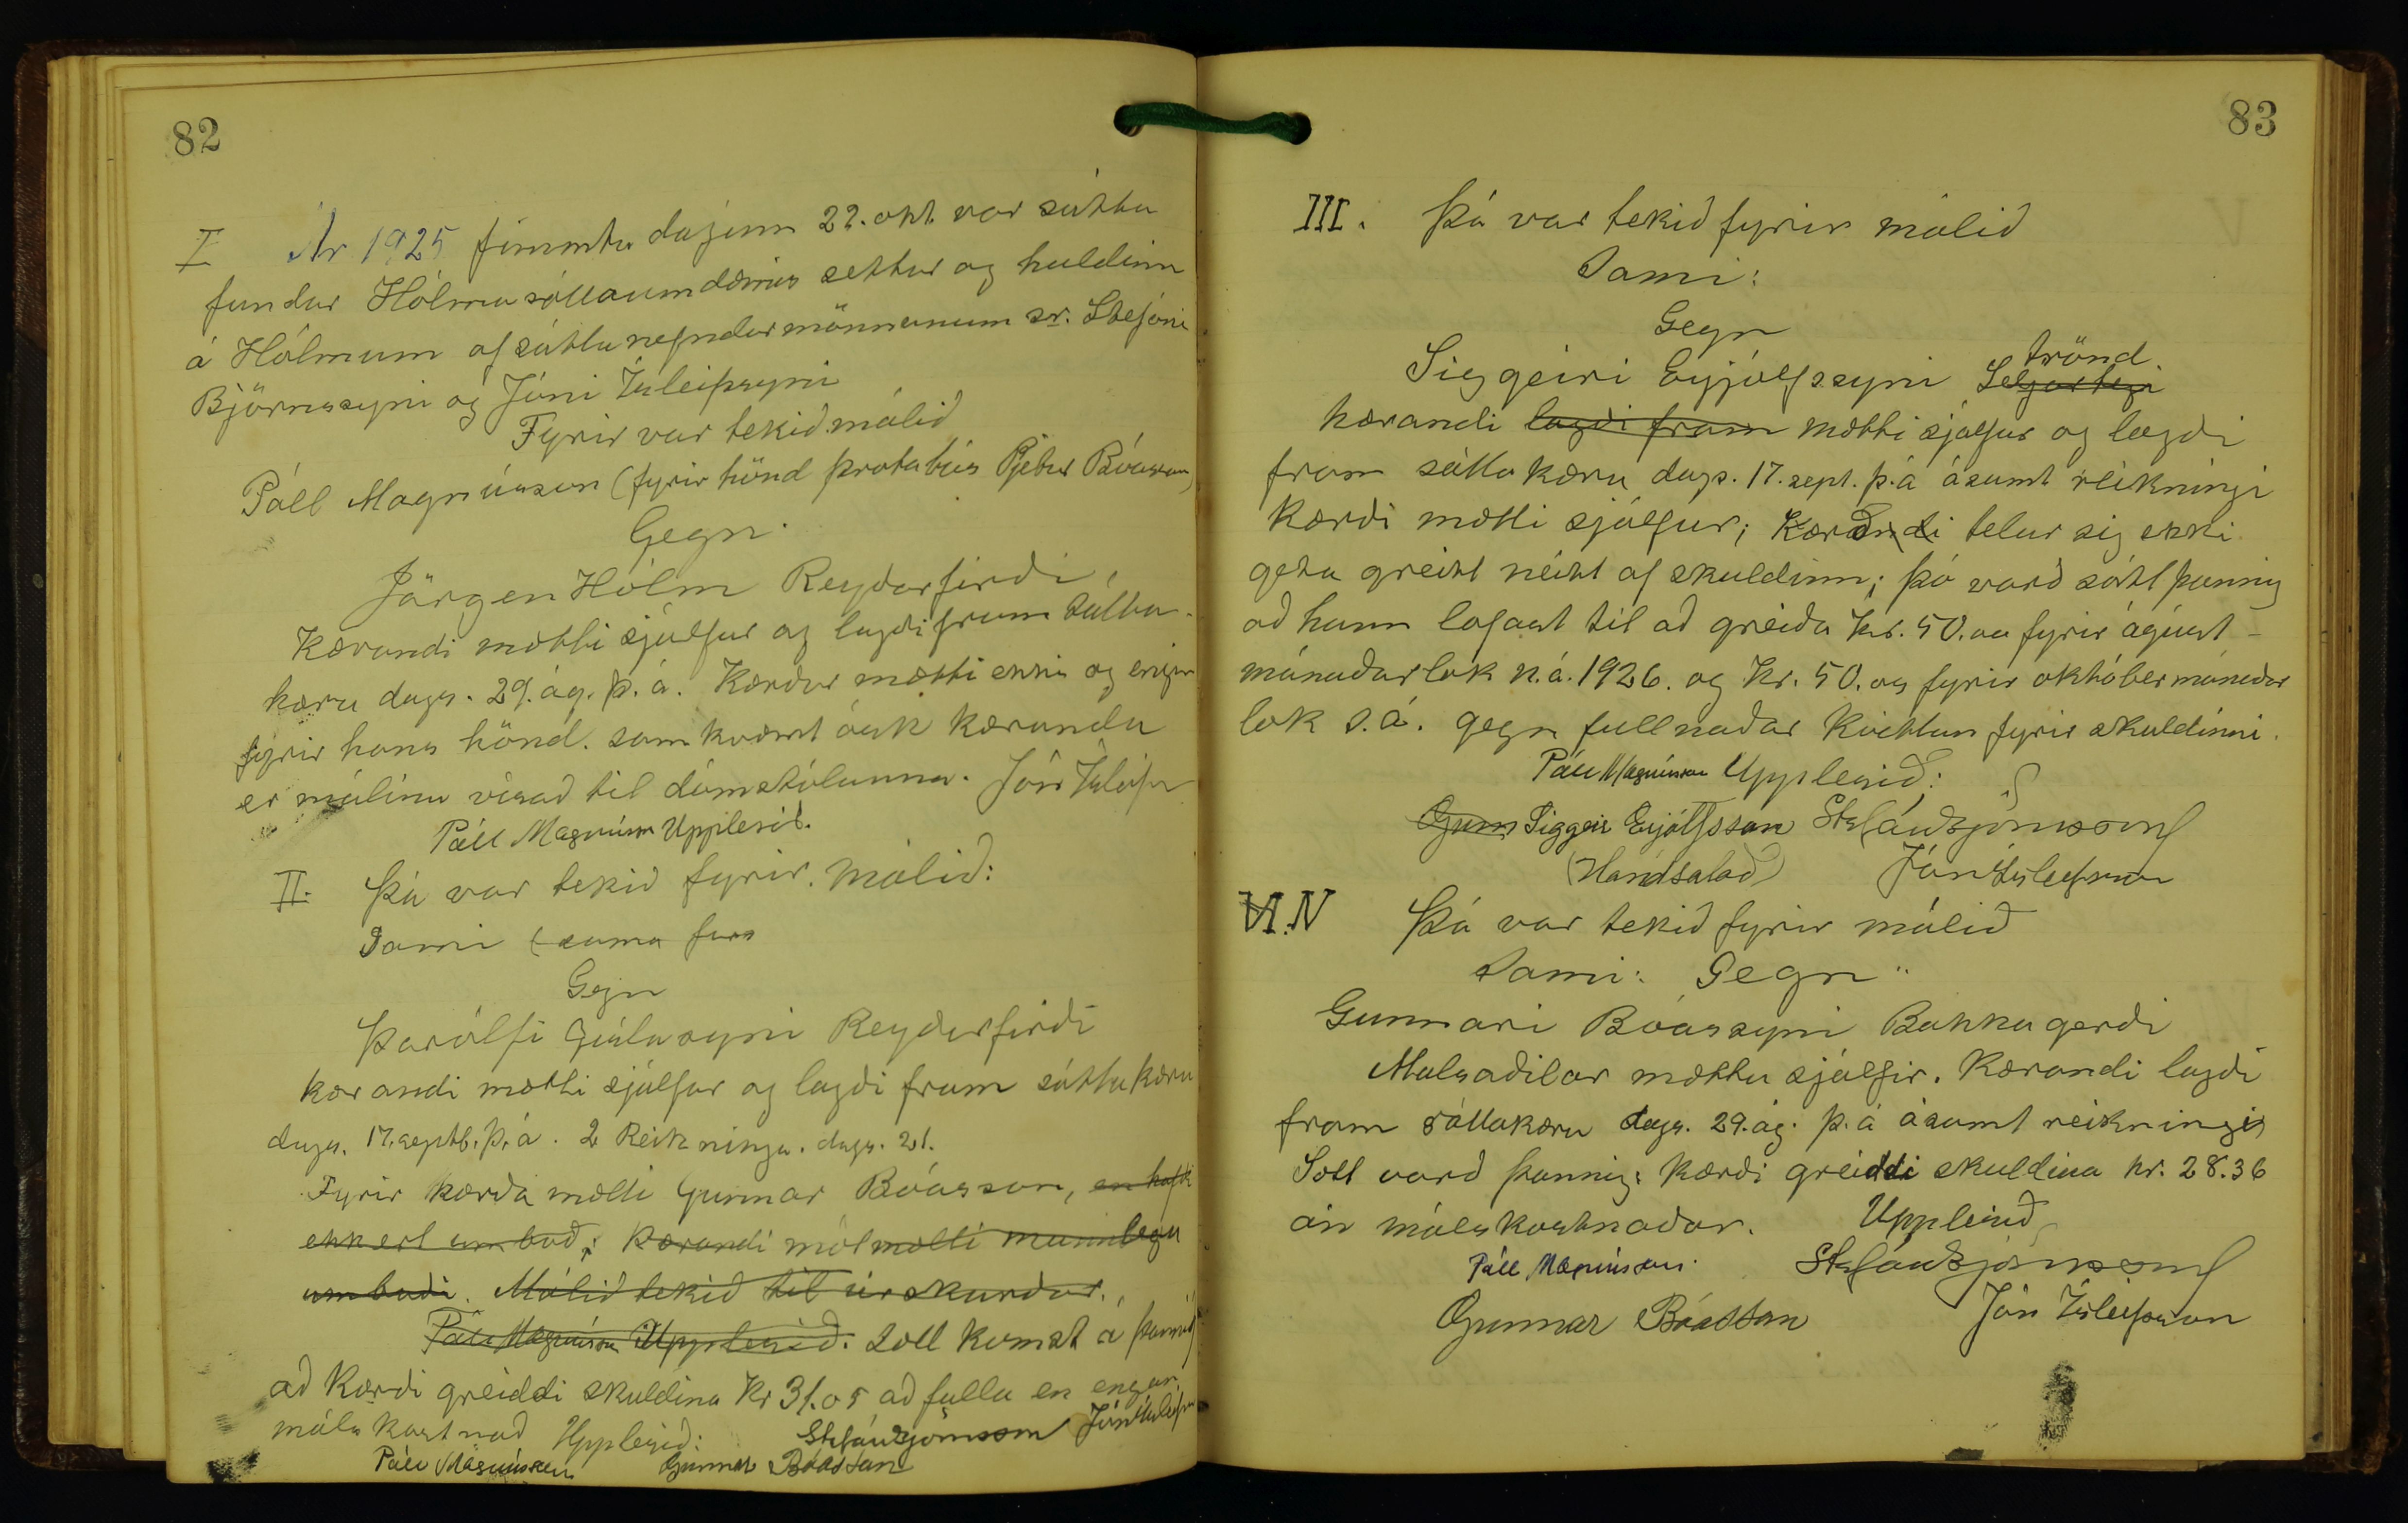 82
I Ár 1925 fimmtudaginn 22. okt. var sátta
fundur Hólmasáttaumdæmis settur og haldinn
á Hólmum af sáttanefndarmönnunum sr. Stefáni
Björnssyni og Jóni Ísleifssyni
Fyrir var tekið málið
Páll Magnússon (fyrir hönd þrotabús Pjeturs Bóassonar)
Gegn
Jörgen Hólm Reyðarfirði,
Kærandi mætti sjálfur og lagði fram sátta-
kæru dags. 29. ág. þ. á. Kærður mætti ekki og enginn
fyrir hans hönd. samkvæmt ósk kæranda
er málinu vísað til dómstólanna. Jón Ísleifs
Páll Magnússon Upplesið.
II. Þá var tekið fyrir málið:
Sami (sama
Gegn
Þórólfi Gíslasyni Reyðarfirði
kærandi mætti sjálfur og lagði fram sáttakæru
dags. 17. septb. þ. á. 2 Reikninga. dags. 21.
Fyrir kærða mætti Gunnar Bóasson, en hafði
ekkert umboð; Kærandi mótmælti munnlegu
umboði. Málið tekið til úrskurðar.
Páll Magnússon Upplesið. Sátt komst á þannig
að Kærði greiddi skuldina Kr 31.05 að fullu en engan
málskostnað Upplesið: Stefán Björnsson Jón Ísleifsson
Páll Magnússon Gunnar Bóasson
83
III. Þá var tekið fyrir málið
Sami:
Gegn
strönd
Siggeiri Eyjólfssyni Seljateigi
kærandi lagði fram mætti sjálfur og lagði
fram sáttakæru dags. 17. sept. þ. á ásamt reikningi
Kærði mætti sjálfur; Kærandi telur sig ekki
geta greitt neitt af skuldinni; þó varð sátt þannig
að hann lofast til að greiða Kr. 50.oo fyrir ágúst-
mánaðarlok n. á. 1926. og Kr. 50.oo fyrir októbermánaðar
lok s. á. gegn fullnaðar kvittun fyrir skuldinni.
Páll Magnússon Upplesið:
Gunn Siggeir Eyjólfsson Stefán Björnsson
(Handsalað) Jón Ísleifsson
VI. IV Þá var tekið fyrir málið
Sami: Gegn
Gunnari Bóassyni Bakkagerði
Málsaðilar mættu sjálfir. Kærandi lagði
fram sáttakæru dags. 29. ág. þ. á ásamt reikningi
Sátt varð þannig: Kærði greiddi skuldina kr. 28.36
án málskostnaðar. Upplesið
Páll Magnússon. Stefán Björnsson
Gunnar Bóasson Jón Ísleifsson